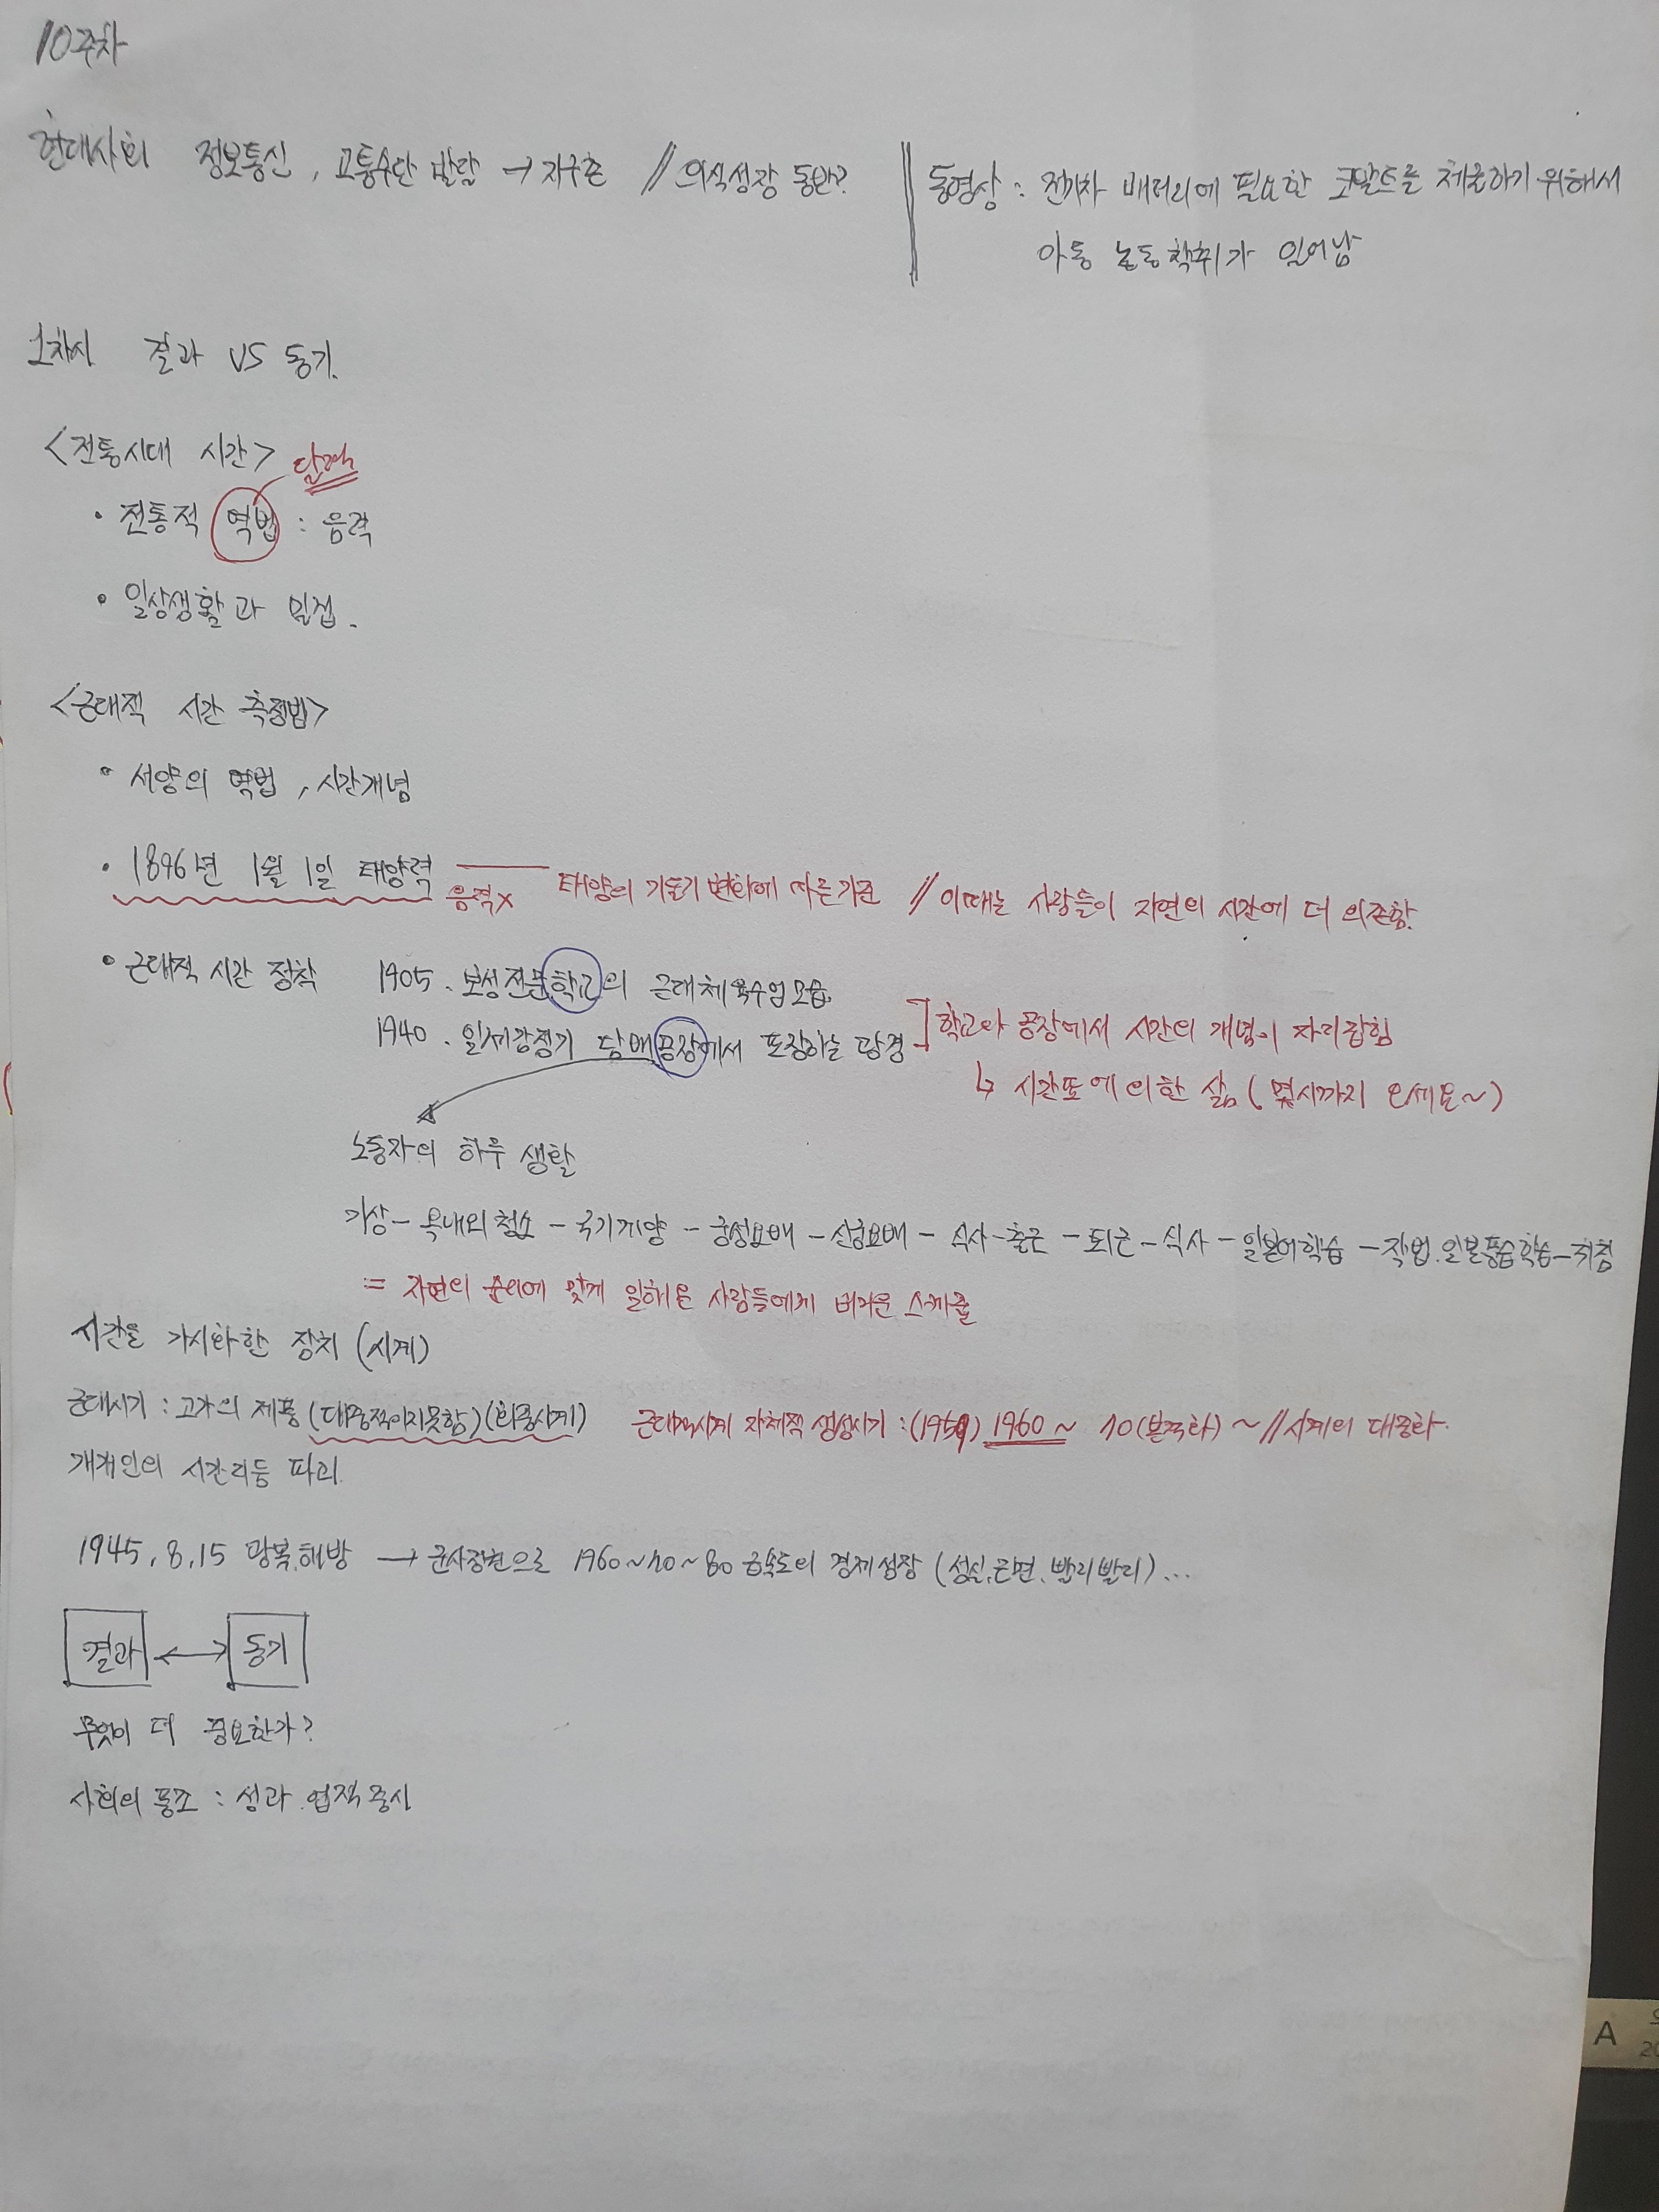 10주차
현대사회 정보통신, 교통수단 발달 → 지구촌 // 의식성장 동반?
동영상 : 전기차 배터리에 필요한 코발트를 채굴하기 위해서
아동 노동착취가 일어남
1차시 결과 VS 동기.
<전통시대 시간> 달력
• 전통적 역법 : 음력
• 일상생활과 밀접.
<근대적 시간 측정법>
• 서양의 역법, 시간개념
• 1896년 1월 1일 태양력
음력x 태양의 기울기 변화에 따른 기준 // 이때는 사람들이 자연의 시간에 더 의존함.
• 근대적 시간 정착 1905. 보성전문학교의 근대체육수업모습
1940. 일제강점기 담배공장에서 포장하는 광경
학교와 공장에서 시간의 개념이 자리잡힘
↳ 시간표에 의한 삶 (몇시까지 오세요~)
노동자의 하루 생활
기상 - 옥내외청소 - 국기게양 - 궁성요배 - 신궁요배 - 식사 - 출근 - 퇴근 - 식사 - 일본어학습 - 작법.일본풍습학습 - 취침
:= 자연의 순리에 맞게 일하던 사람들에게 버거운 스케줄
시간을 가시화한 장치 (시계)
근대시기 : 고가의 제품 (대중적이지못함) (회중시계) 근대적시계 자체적 생성시기 : (1959) 1960 ~ 70 (본격화) ~ // 시계의 대중화.
개개인의 시간리듬 파괴.
1945. 8. 15 광복.해방 → 군사정권으로 1960~70~80 급속도의 경제성장 (성실.근면.빨리빨리)...
결과 ↔ 동기
무엇이 더 중요한가?
사회의 풍조 : 성과.업적 중시
A